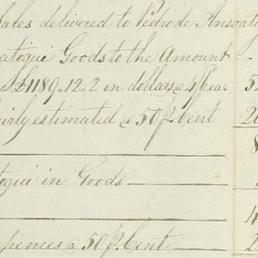 ales delivered to Pedro de Ansoat
ategui Goods to the Amount
£1189.12.2 in dollars @ 4/6 ea 5
airly estimated @ 50 p. Cent 20
8
tegui in Goods
4
pences @ 50 p. Cent 2